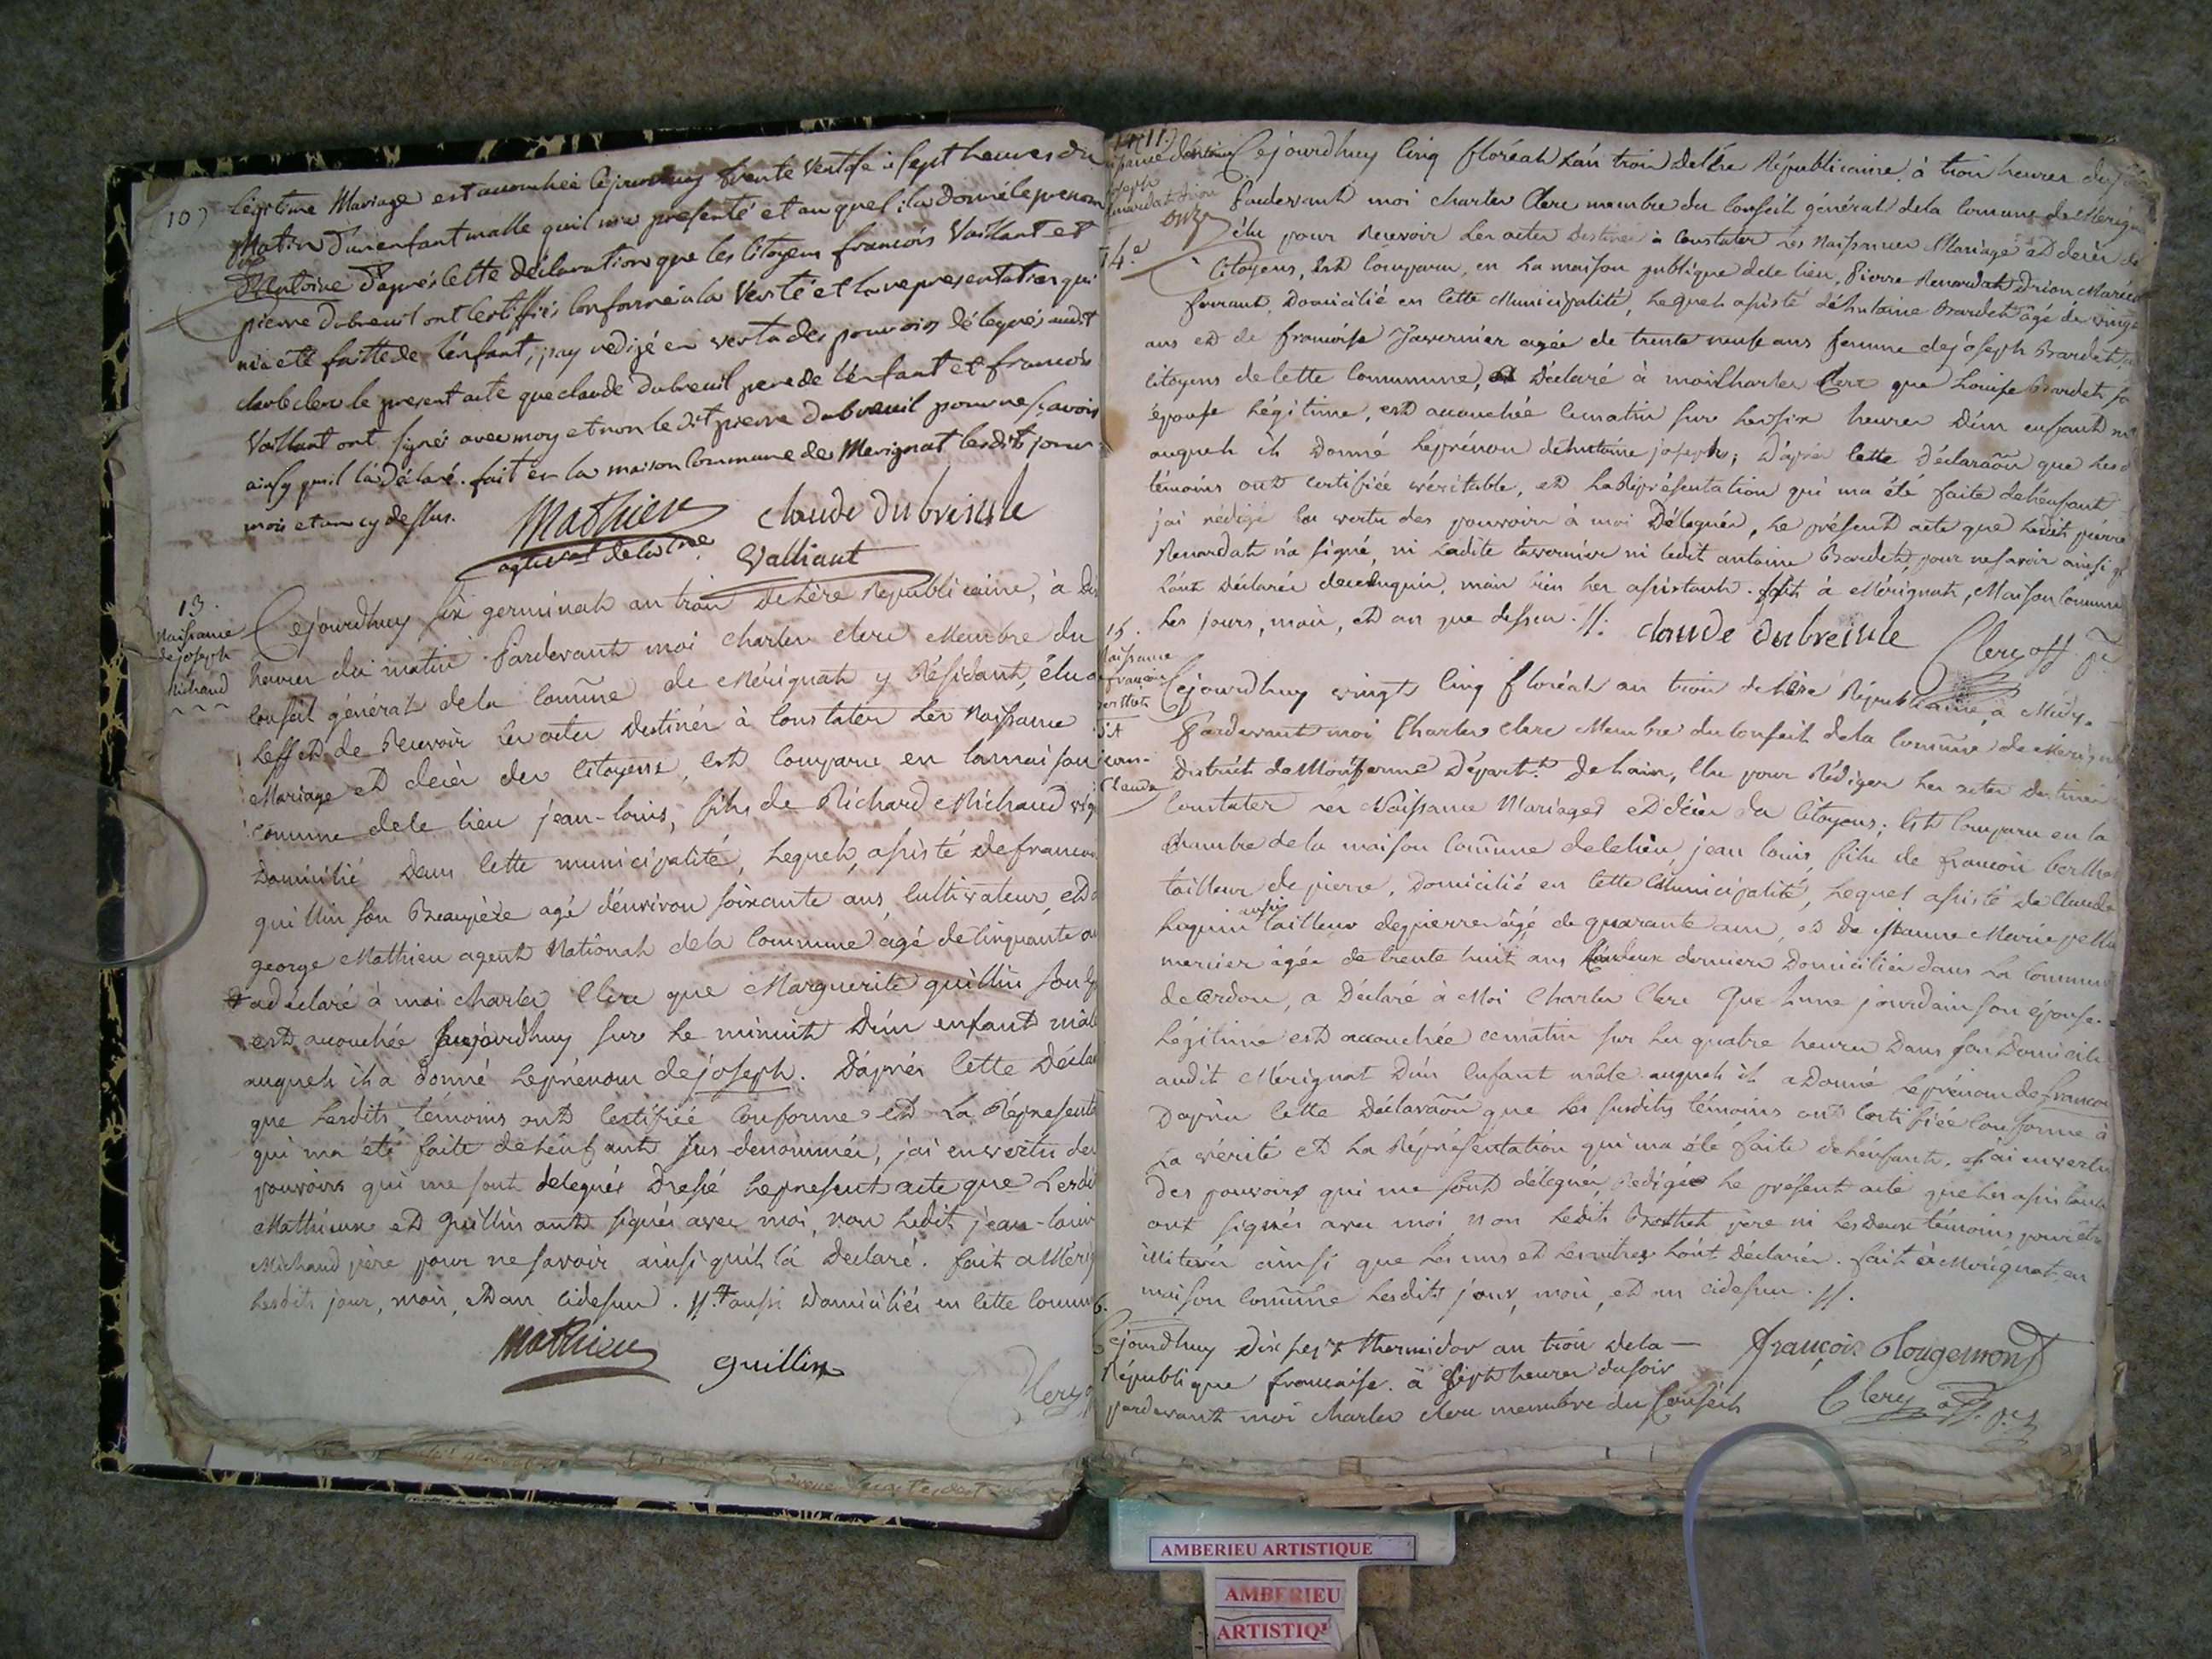 10)
légitime Mariage est accouchée cejourdhuy trente Ventose à sept heures du
Matin d'un enfant malle quil ma présenté et auquel il a donné le prenom
d'Antoine d'après cette déclaration que les citoyens françois Vaillant et
pierre dubreuil ont certiffiés conforme à la Verité et la representation qui
m'a eté faitte de l'enfant, jay redigé en vertu des pouvoirs délegués audit
clerc le present acte que claude dubreuil pere de l'enfant et françois
Vaillant ont signés avec moy et non le dit pierre dubreuil pour ne sçavoir
ainsy quil l'a déclaré. fait en la maison Commune de Merignat lesdits jour
mois et an cy dessus.
Mathieu claude dubreiule
Valliant
13.
Naissance
de joseph
Michaud
Cejourdhuy six germinal an trois de l'ère Republicaine, à
heures du matin Pardevant moi charles clerc Membre du
Conseil général de la Comune de Mérignat y Résidant, élu a
L'effet de Recevoir les actes destinés à Constater les Naissance
Mariage et décès des Citoyens, est Comparu en la maison
Comune de ce lieu jean-louis, fils de Richard Michaud
Domicilié dans cette municipalité, lequel, assisté de francois
quillin son Beaupère agé d'environ soixante ans, cultivateur, et
george Mathieu agent National de la Commune agé de cinquante
a declaré à moi charles Clerc que Marguerite quillin son
est accouchée aujourdhuy sur le minuit d'un enfant mâle
auquel il a donné le prénom de joseph. D'après cette Décla
que lesdits témoins ont certifiée Conforme et la Représenta
qui m'a été faite de l'enfant sus-denommés, j'ai en vertu des
pouvoirs qui me sont delegués Dressé le present acte que Lesdi
Mathieux et quillin ont signés avec moi, non ledit jean-louis
Michaud père pour ne savoir ainsi quil l'a declaré. fait a Mérig
lesdits jour, mois, et an cidessus. // aussi domiciliés en cette Commu
Mathieu quillin
Clerc
14.e
Cejourdhuy Cinq floréal L'an trois de L'ère Républicaine, à trois heures du
Pardevant moi charles Clerc membre du Conseil général de la Comune de Mérigna
élu pour Recevoir les actes destinés à Constater les Naissances Mariage et décès de
Citoyens, Est Comparu, en la maison publique de ce lieu, Pierre Renardat Drion Maréch
ferrant, Domicilié en cette Municipalité, lequel assisté d'Antoine Bardet agé de vingt
ans et de françoise Tavernier agée de trente neuf ans femme de joseph Bardet
Citoyens de cette Commune, a Déclaré à moi Charles Clerc que Louise Bardet sa
épouse légitime, est accouchée ce matin sur les six heures d'un enfant
auquel il Donné le prénom d'Antoine joseph; D'après cette Déclaraōn que les
témoins ont certifiée véritable, et la Représentation qui m'a été faite de l'enfant
j'ai rédigé en vertu des pouvoirs à moi Délégués, le présent acte que ledit pierre
Renardat n'a signé, ni ladite tavernier ni ledit antoine Bardet pour ne savoir ainsi
l'ont Déclarés, mais bien les assistants. fait à Mérignat, Maison Commune
les jours, mois, et an que dessus. //. claude dubreiule Clerc off. p.
15.
Naissance
françois
Cejourdhuy vingt Cinq floréal an trois de l'ère Républicaine, à Midy.
Pardevant moi Charles Clerc Membre du Conseil de la Comune de Mérign
District de Montferme Départ.t de L'ain, Elu pour Rédiger les actes Destinés
Constater les Naissance Mariages et décès des Citoyens; Est Comparu en la
chambre de la maison Comune de ce lieu, jean louis, fils de francois berthet
tailleur de pierre, Domicilié en cette Municipalité, lequel assisté de Claude
aussi tailleur de pierre âgé de quarante ans, et de Jeanne Marie
mercier âgée de trente huit ans deux derniers Domiciliés dans la Commune
de Cerdon, a Déclaré à Moi Charles Clerc Que jourdain son épouse
légitime est accouchée ce matin sur les quatre heures Dans son Domicile
audit Mérignat D'un Enfant mâle auquel il a Donné le prénom de francois
D'après cette Déclaraōn que les susdits témoins ont certifiée Conforme à
la vérité et la Représentation qui m'a été faite de l'enfant. J'ai en vertu
des pouvoirs qui me sont délégués, Rédigé le présent acte que les assistans
ont signés avec moi, non ledit Berthet père ni les deux témoins pour être
illiterés ainsi que les uns et les autres l'ont Déclarés. fait à Mérignat en
maison Comune lesdits jour, mois, et an cidessus. //.
Cejourdhuy Dix sept thermidor an trois de la
République francaise. à sept heures du soir
pardevant moi charles clerc membre du Conseil
françois Rougemont
Clerc off. p.
AMBERIEU ARTISTIQUE
AMBERIEU
ARTISTIQ